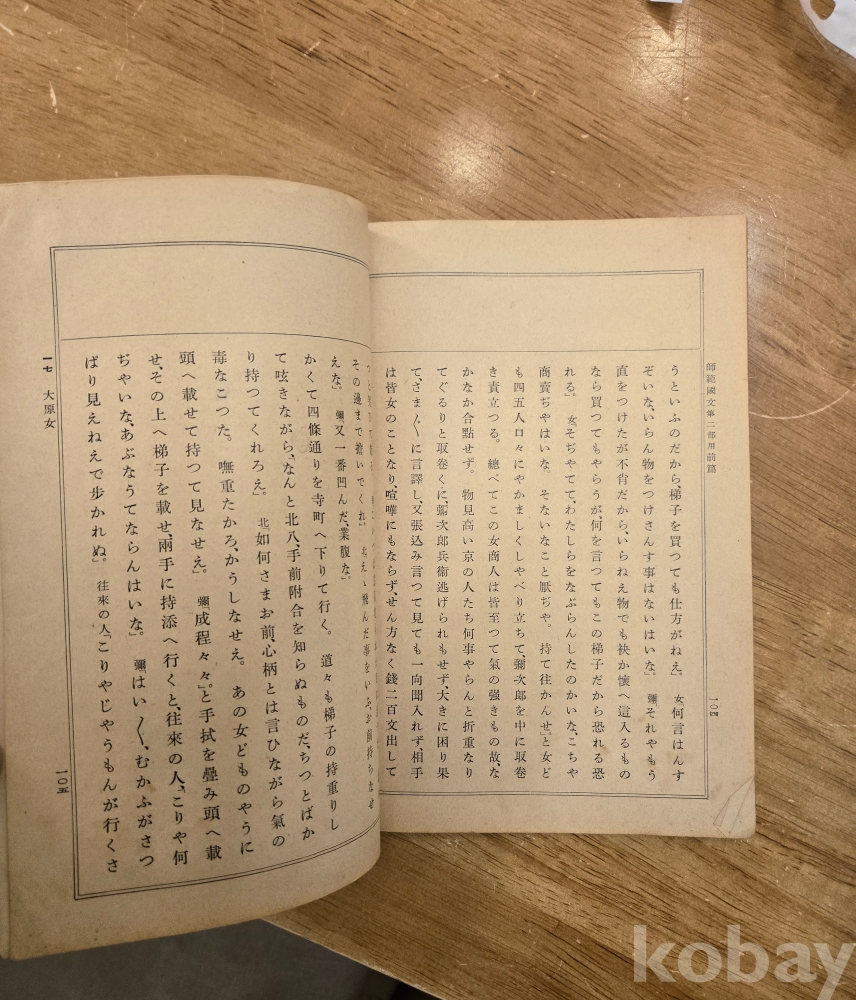 師範國文第二部用前篇
一〇四
うといふのだから、梯子を買つても仕方がねえ。」 女「何言はんす
ぞいな、いらん物をつけさんす事はないはいな。」 彌「それやもう
直をつけたが不肖だから、いらねえ物でも袂か懷へ這入るもの
なら買つてもやらうが、何を言つてもこの梯子だから恐れる恐
れる。」 女「そぢやてて、わたしらをなぶらんしたのかいな、こちや
商賣ぢやはいな。そないなこと厭ぢや。持て往かんせ。」と女ど
も四五人口々にやかましくしやべり立ちて、彌次郎を中に取卷
き責立つる。總べてこの女商人は皆至つて氣の強きもの故、な
かなか合點せず。物見高い京の人たち何事やらんと折重なり
てぐるりと取卷くに、彌次郎兵衞逃げられもせず、大きに困り果
て、さま〲に言譯し、又張込み言つて見ても一向聞入れず、相手
は皆女のことなり、喧嘩にもならず、せん方なく錢二百文出して
その邊まで擔いでくれ。」 北「えゝ飛んだ事をいふ、お前持ちなせ
えな。」 彌「又一番凹んだ、業腹な。」
かくて四條通りを寺町へ下りて行く。道々も梯子の持重りし
て呟きながら、「なんと北八、手前附合を知らぬものだ、ちつとばか
り持つてくれろえ。」 北「如何さまお前、心柄とは言ひながら氣の
毒なこつた。嘸重たかろ、かうしなせえ。あの女どものやうに
頭へ載せて持つて見なせえ。」 彌「成程々々。」と手拭を疊み頭へ載
せ、その上へ梯子を載せ、兩手に持添へ行くと、往來の人、「こりや何
ぢやいな、あぶなうてならんはいな。」 彌「はい〱、むかふがさつ
ぱり見えねえで歩かれぬ。」 往來の人「こりやじやうもんが行くさ
一七 大原女
一〇五
kobay